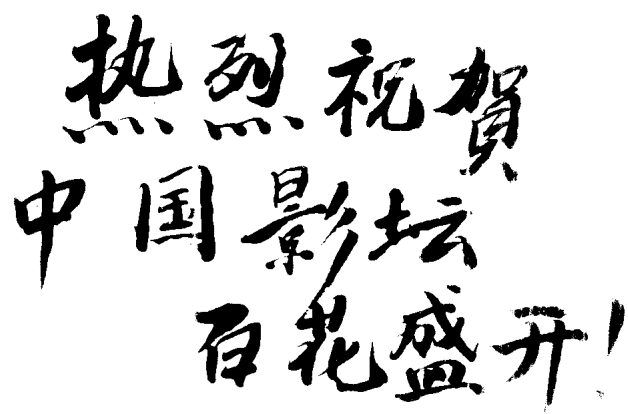 热烈祝賀
中国影坛
百花盛开!